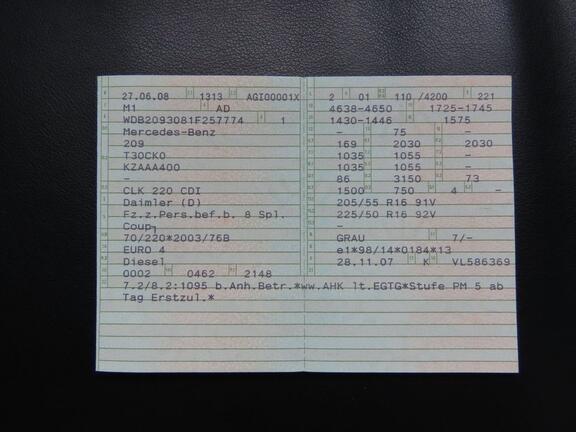 27.06.08 1313 AGI00001X
M1 AD
WDB2093081F257774 1
Mercedes-Benz
209
T30CK0
KZAAA400
-
CLK 220 CDI
Daimler (D)
Fz.z.Pers.bef.b. 8 Spl.
Coup
70/220*2003/76B
EURO 4
Diesel
0002 0462 2148
2 01 110 /4200 221
4638-4650 1725-1745
1430-1446 1575
- 75 -
169 2030 2030
1035 1055 -
1035 1055 -
86 3150 73
1500 750 4 -
205/55 R16 91V
225/50 R16 92V
-
GRAU 7/-
e1*98/14*0184*13
28.11.07 K VL586369
7.2/8.2:1095 b.Anh.Betr.*ww.AHK lt.EGTG*Stufe PM 5 ab
Tag Erstzul.*